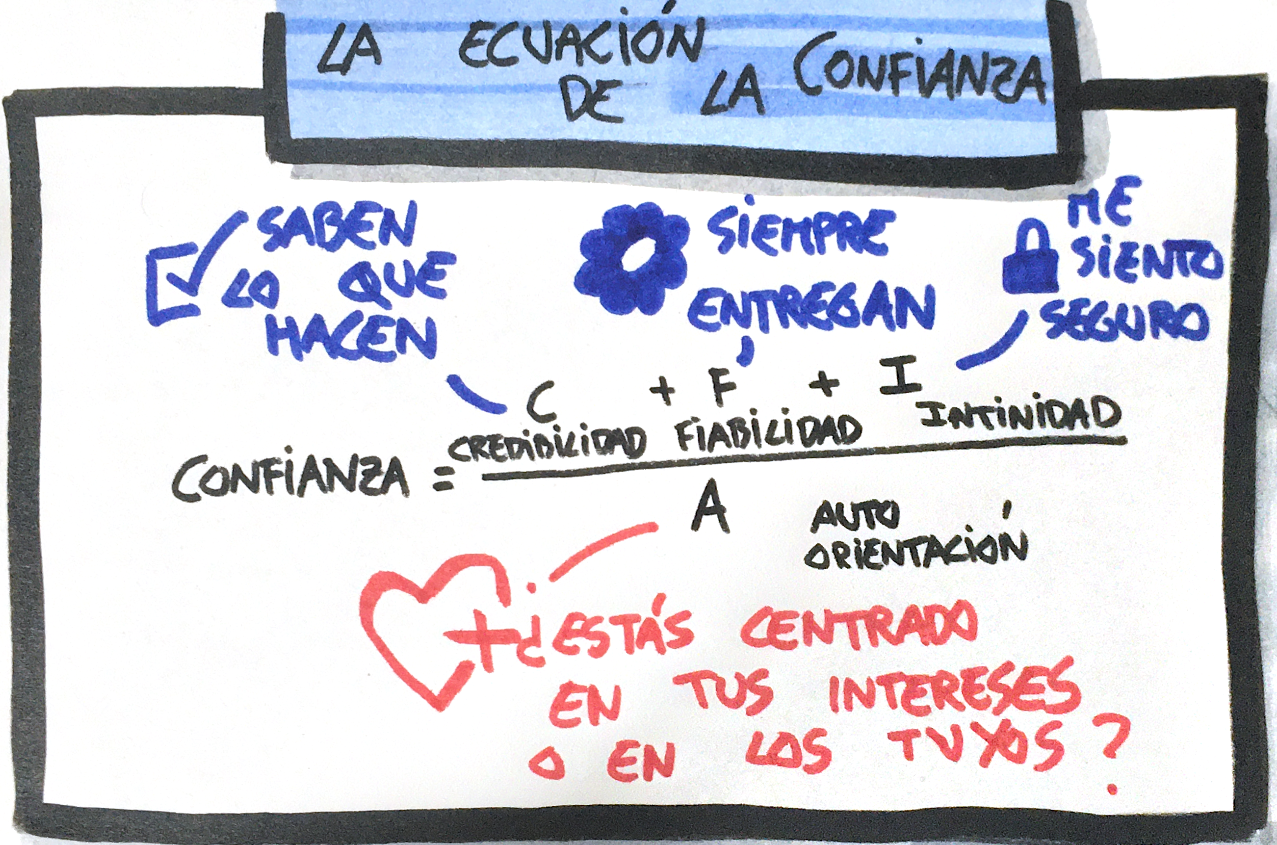 LA ECUACIÓN
DE LA CONFIANZA
SABEN
LO QUE
HACEN
SIEMPRE
ENTREGAN
ME
SIENTO
SEGURO
C + F + I
CREDIBILIDAD FIABILIDAD INTINIDAD
CONFIANZA =
A
AUTO
ORIENTACIÓN
+ ¿ESTÁS CENTRADO
EN TUS INTERESES
O EN LOS TUYOS?